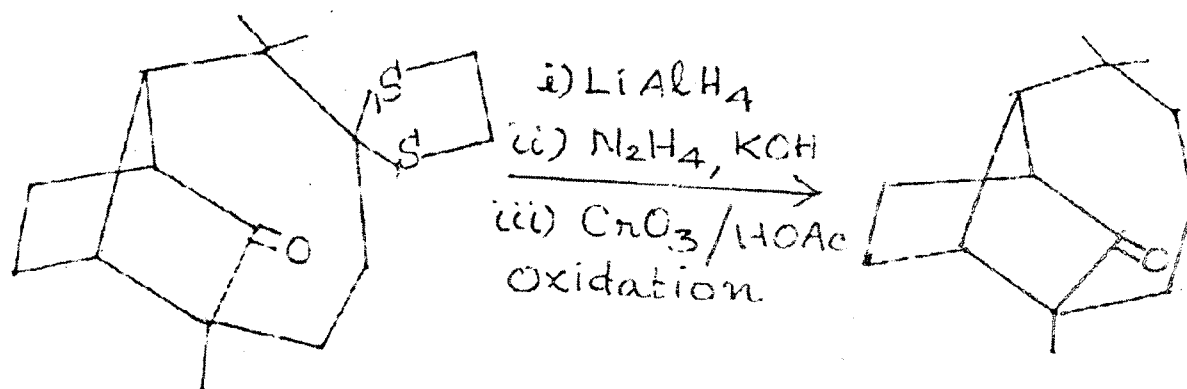 S
S
O
i) LiAlH4
ii) N2H4, KOH
iii) CrO3/HOAc
Oxidation
O